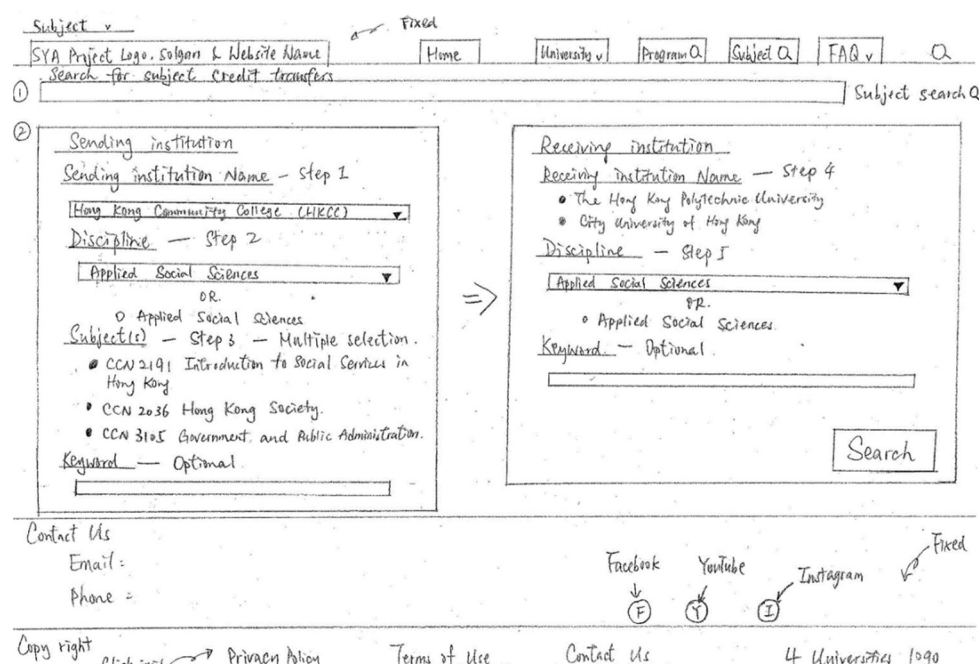 Subject v
Fixed
SYA Project Logo. Solgan & Website Name
Home
University v
Program Q
Subject Q
FAQ v
Q
Search for subject credit transfers
① Subject search Q
②
Sending institution
Sending institution Name - Step 1
Hong Kong Community College (HKCC)
Discipline — Step 2
Applied Social Sciences
OR.
Applied Social Sciences
Subject(s) — Step 3 — Multiple selection.
CCN 2191 Introduction to Social Services in
Hong Kong
CCN 2036 Hong Kong Society.
CCN 3105 Government and Public Administration.
Keyword — Optional
⇒
Receiving institution
Receiving institution Name — Step 4
The Hong Kong Polytechnic University
City University of Hong Kong
Discipline — Step 5
Applied Social Sciences
OR.
Applied Social Sciences
Keyword — Optional
Search
Contact Us
Email :
Phone :
Facebook
YouTube
Instagram
Fixed
F
Y
I
Copy right
Privacy Policy
Terms of Use
Contact Us
4 Universities logo